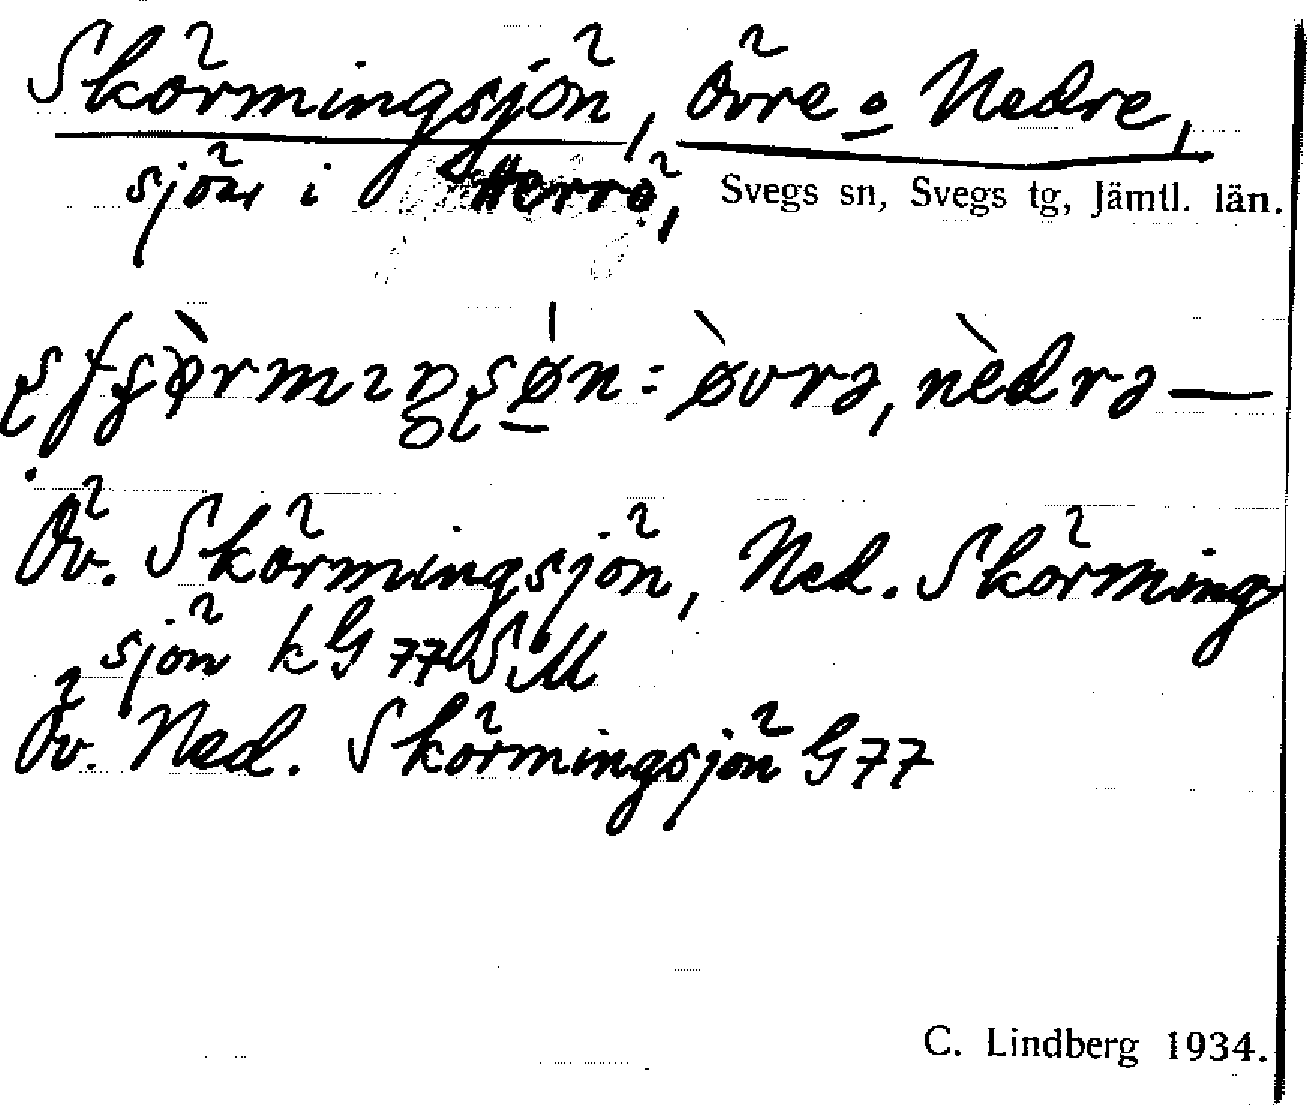 Skörmingsjön, Övre o Nedre,
sjöar i Herrö, Svegs sn, Svegs tg, Jämtl. län.
Öv. Skörmingsjön, Ned. Skörming
sjön kG 77 SM
Öv. Ned. Skörmingsjön G77
C. Lindberg 1934.